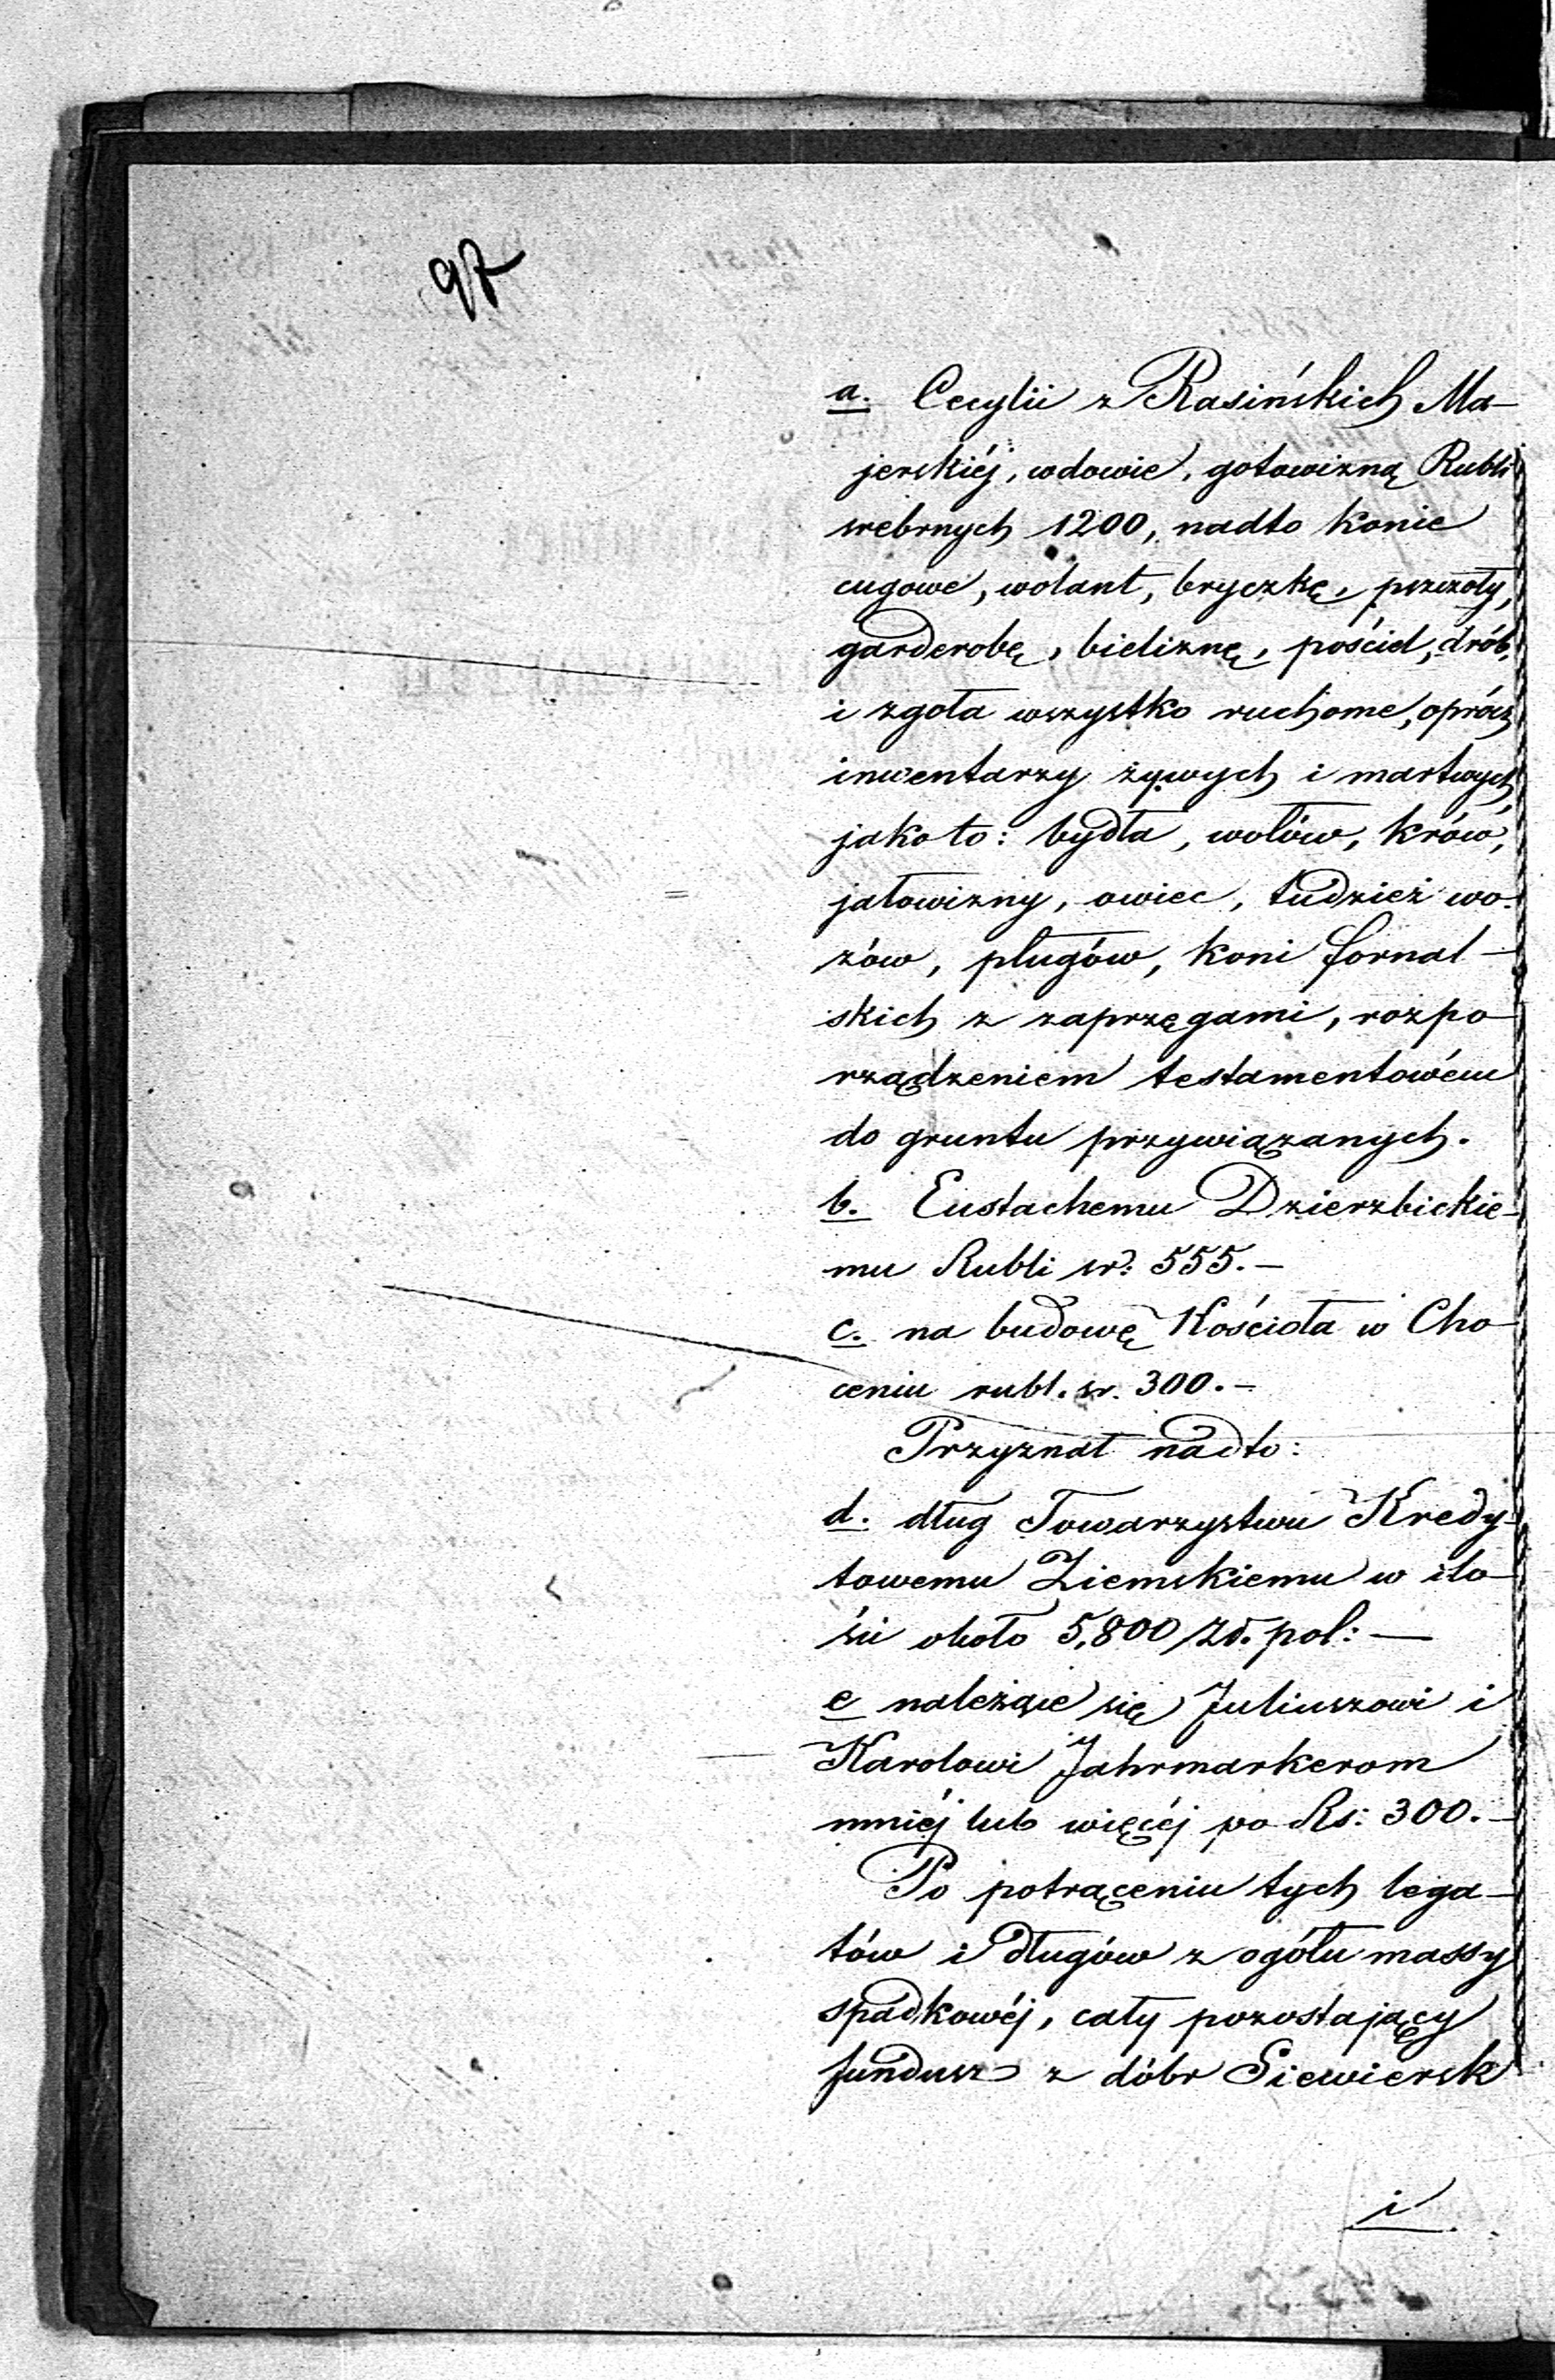 97
a. Cecylii z Rasińskich Ma-
jerskiéj, wdowie, gotowizną Rubli
srebrnych 1200, nadto konie
cugowe, wolant, bryczkę, pszczoły,
garderobę, bieliznę, pościel, drób,
i zgoła wszystko ruchome, oprócz
inwentarzy żywych i martwych,
jako to: bydła, wołów, krów,
jałowizny, owiec, tudzież wo-
zów, pługów, koni fornal-
skich z zaprzęgami, rozpo-
rządzeniem testamentowém
do gruntu przywiązanych.
b. Eustachemu Dzierzbickie-
mu Rubli sr: 555.-
c. na budowę Kościoła w Cho-
ceniu rubl. sr. 300.-
Przyznał nadto:
d. dług Towarzystwu Kredy-
towemu Ziemskiemu w ilo-
ści około 5,800 Zł. pol: —
e należące się Juliuszowi i
Karolowi Jahrmarkerom
mniéj lub więcéj po Rs: 300.-
Po potrąceniu tych lega-
tów i długów z ogółu massy
spadkowéj, cały pozostający
fundusz z dóbr Siewiersk
i